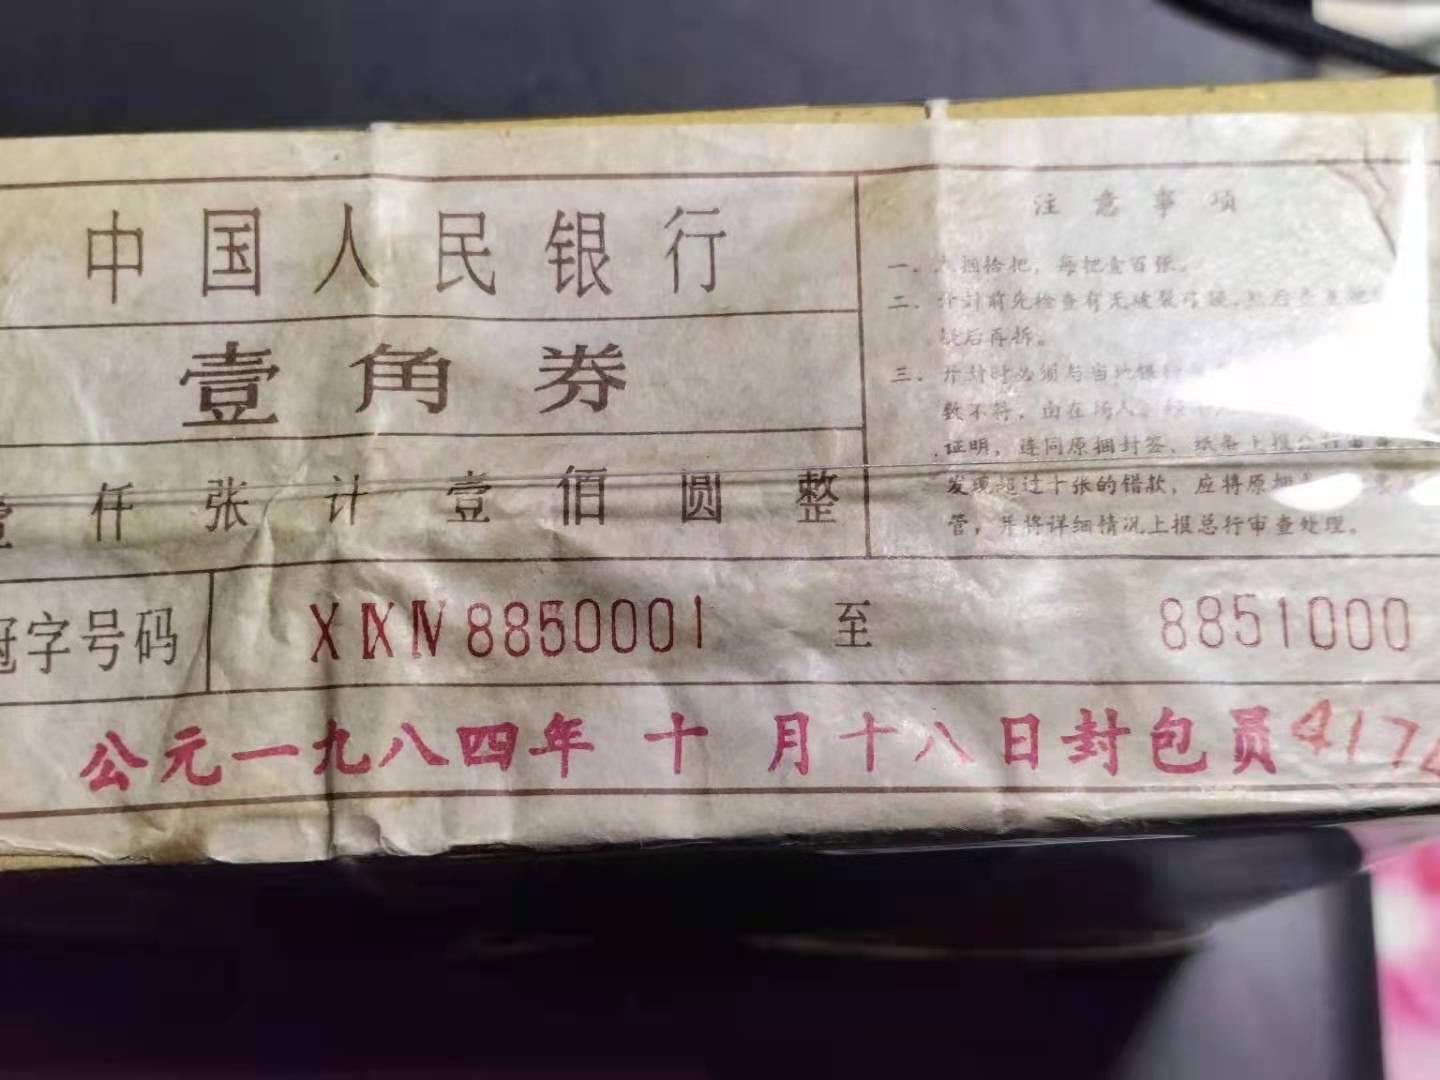 中国人民银行
壹角券
壹仟张计壹佰圆整
冠字号码 X IX IV 8850001 至 8851000
公元一九八四年 十 月十八日封包员 417
注意事项
一．捆拾把，每把壹百张。
二．前先检查有无破裂
后再拆。
三．开封时必须与当地银行
数不符，由在场人
证明，连同原捆封签、纸条上报
发现超过十张的错款，应将原捆
管，并将详细情况上报总行审查处理。